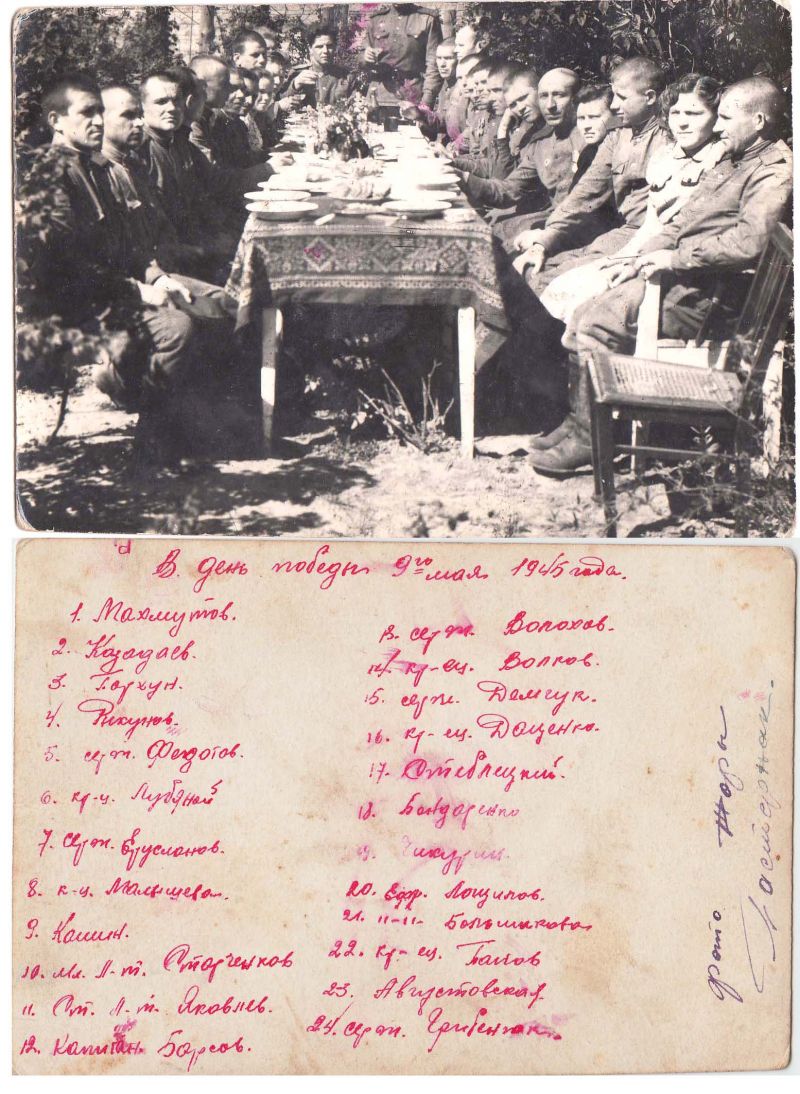 В день победы 9го мая 1945 года.
1. Махмутов.
2. Казадаев.
3. Горхун.
4. Рикунов.
5. серж. Федотов.
6. кр-ц. Лубяной
7. серж. Ерусланов.
8. к-ц. Малышева.
9. Камин.
10. мл. л-т. Старченков
11. Ст. л-т. Яковлев.
12. Капитан Барсов.
13. серж. Волохов.
14. кр-ец. Волков.
15. серж. Демчук.
16. кр-ец. Доценко.
17. Стеблецкий.
18. Бондаренко
19. Чикурин
20. Ефр. Лощилов.
21. -"-"- Большакова
22. кр-ец. Панов
23. Августовская
24. серж. Гребенник.
Фото Жоры
Пастернак.